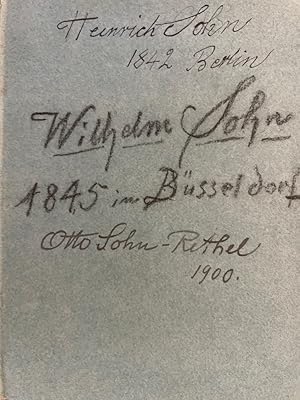 Heinrich Sohn
1842 Berlin
Wilhelm Sohn
1845 in Büsseldorf
Otto Sohn-Rethel
1900.